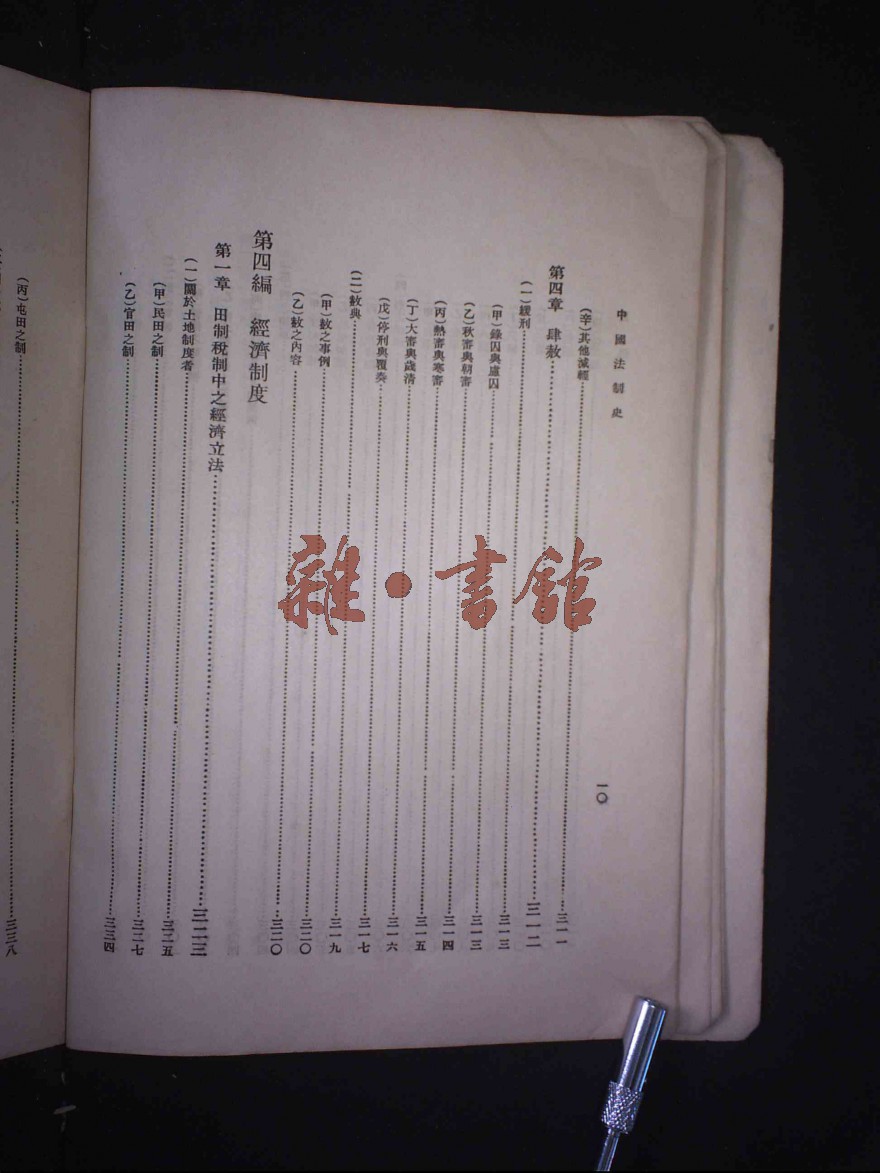 中國法制史
一〇
(辛)其他減輕……三一一
第四章 肆赦……三一二
(一)緩刑……三一三
(甲)錄囚與慮囚……三一三
(乙)秋審與朝審……三一四
(丙)熱審與寒審……三一五
(丁)大審與歲清……三一六
(戊)停刑與覆奏……三一七
(二)赦典……三一九
(甲)赦之事例……三二〇
(乙)赦之內容……三二〇
第四編 經濟制度
第一章 田制稅制中之經濟立法……三二三
(一)關於土地制度者……三二五
(甲)民田之制……三二七
(乙)官田之制……三三四
(丙)屯田之制……三三八
雜·書館